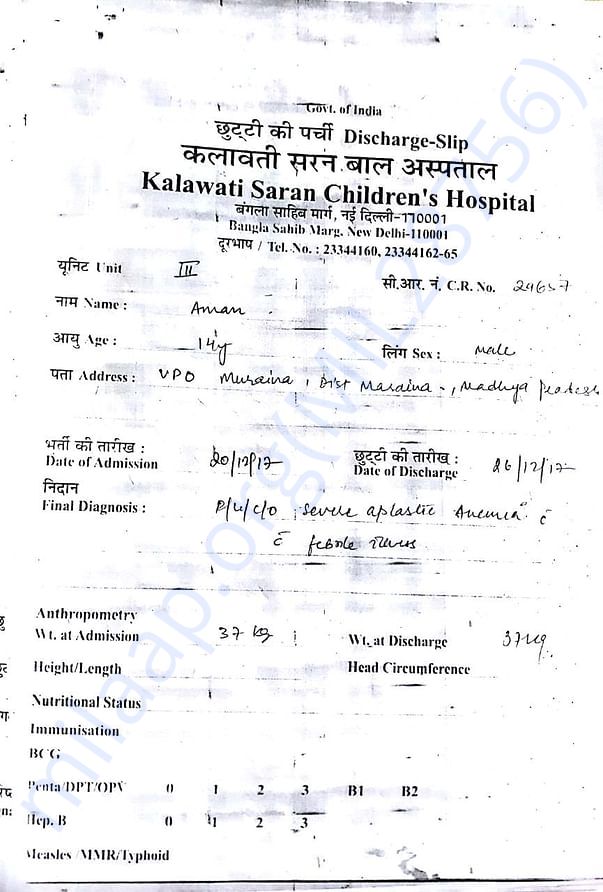 Govt. of India
छुट्टी की पर्ची Discharge-Slip
कलावती सरन बाल अस्पताल
Kalawati Saran Children's Hospital
बंगला साहिब मार्ग, नई दिल्ली-110001
Bangla Sahib Marg. New Delhi-110001
दूरभाष / Tel. No. : 23344160, 23344162-65
यूनिट Unit III
सी.आर. नं. C.R. No. 24657
नाम Name : Aman
आयु Age : 14y
लिंग Sex : male
पता Address : VPO Muraina, Dist Maraina -, Madhya Pradesh
भर्ती की तारीख : 
Date of Admission 20/12/17
छुट्टी की तारीख :
Date of Discharge 26/12/17
निदान
Final Diagnosis : P/U/C/O severe aplastic Anemia c̄
c̄ febrile illness
Anthropometry
Wt. at Admission 37 kg
Wt. at Discharge 37 kg.
Height/Length
Head Circumference
Nutritional Status
Immunisation
BCG
Penta/DPT/OPV 0 1 2 3 B1 B2
Hep. B 0 1 2 3
Measles /MMR/Typhoid
milaap.org(MIL28756)